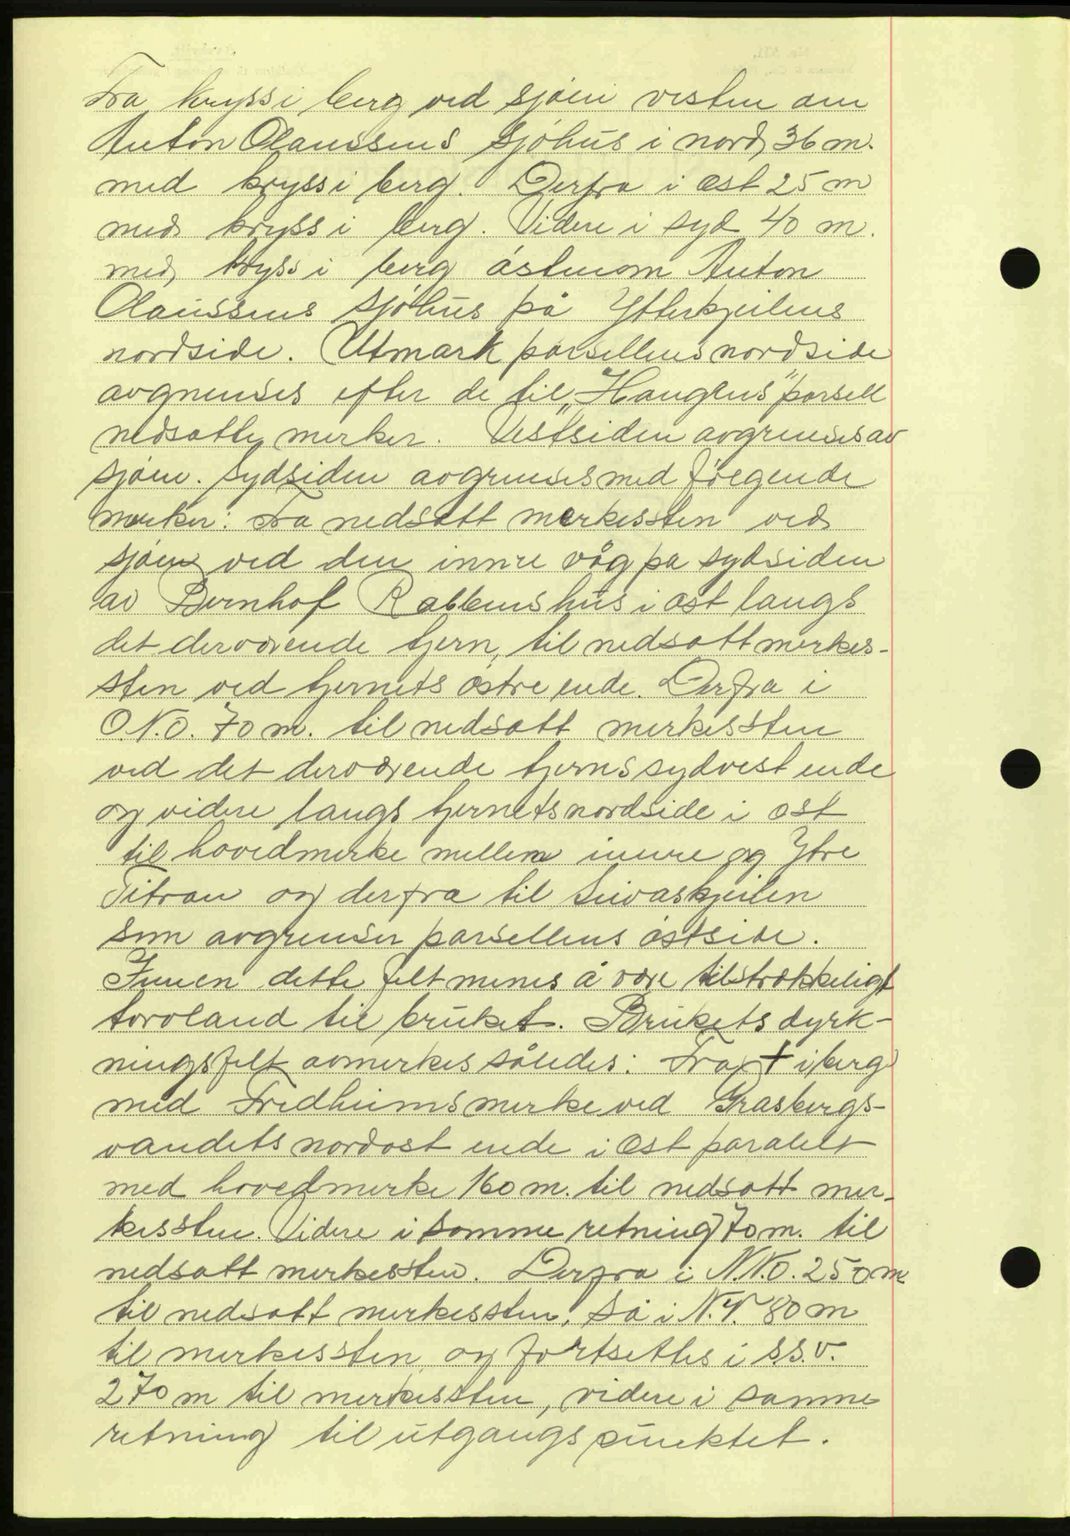 Fra kryss i berg ved sjøen vesten om
Anton Olaussens sjøhus i nord, 36 m.
med kryss i berg. Derfra i øst 25 m
med kryss i berg. Videre i syd 40 m.
med kryss i berg østenom Anton
Olaussens sjøhus på Ytterkjeilens
nordside. Utmark parsellens nordside
avgrenses efter de til „Haugens" parsell
nedsatte merker. Vestsiden avgrenses av
sjøen. Sydsiden avgrenses med følgende
merker: Fra nedsatt merkessten ved
sjøen ved den innre våg på sydsiden
av Bernhof Rabbens hus i øst langs
det derværende tjern, til nedsatt merkes-
sten ved tjernets østre ende. Derfra i
O.N.O. 70 m. til nedsatt merkessten
ved det derværende tjerns sydvest ende
og videre langs tjernets nordside i øst
til hovedmerke mellem innre og Ytre
Titran og derfra til
som avgrenser parsellens østside.
Innen dette felt menes å være tilstrækkeligt
torvland til bruket. Brukets dyrk-
ningsfelt avmerkes således: Fra + i berg
med Fredheims merke ved Grasbergs-
vandets nordøst ende i øst paralelt
med hovedmerke 160 m. til nedsatt mer-
kessten. Videre i samme retning 70 m. til
nedsatt merkessten. Derfra i N.N.O. 250 m
til nedsatt merkessten, så i N.V. 80 m
til merkessten og fortsettes i S.S.V.
270 m til merkessten, videre i samme
retning til utgangspunktet.